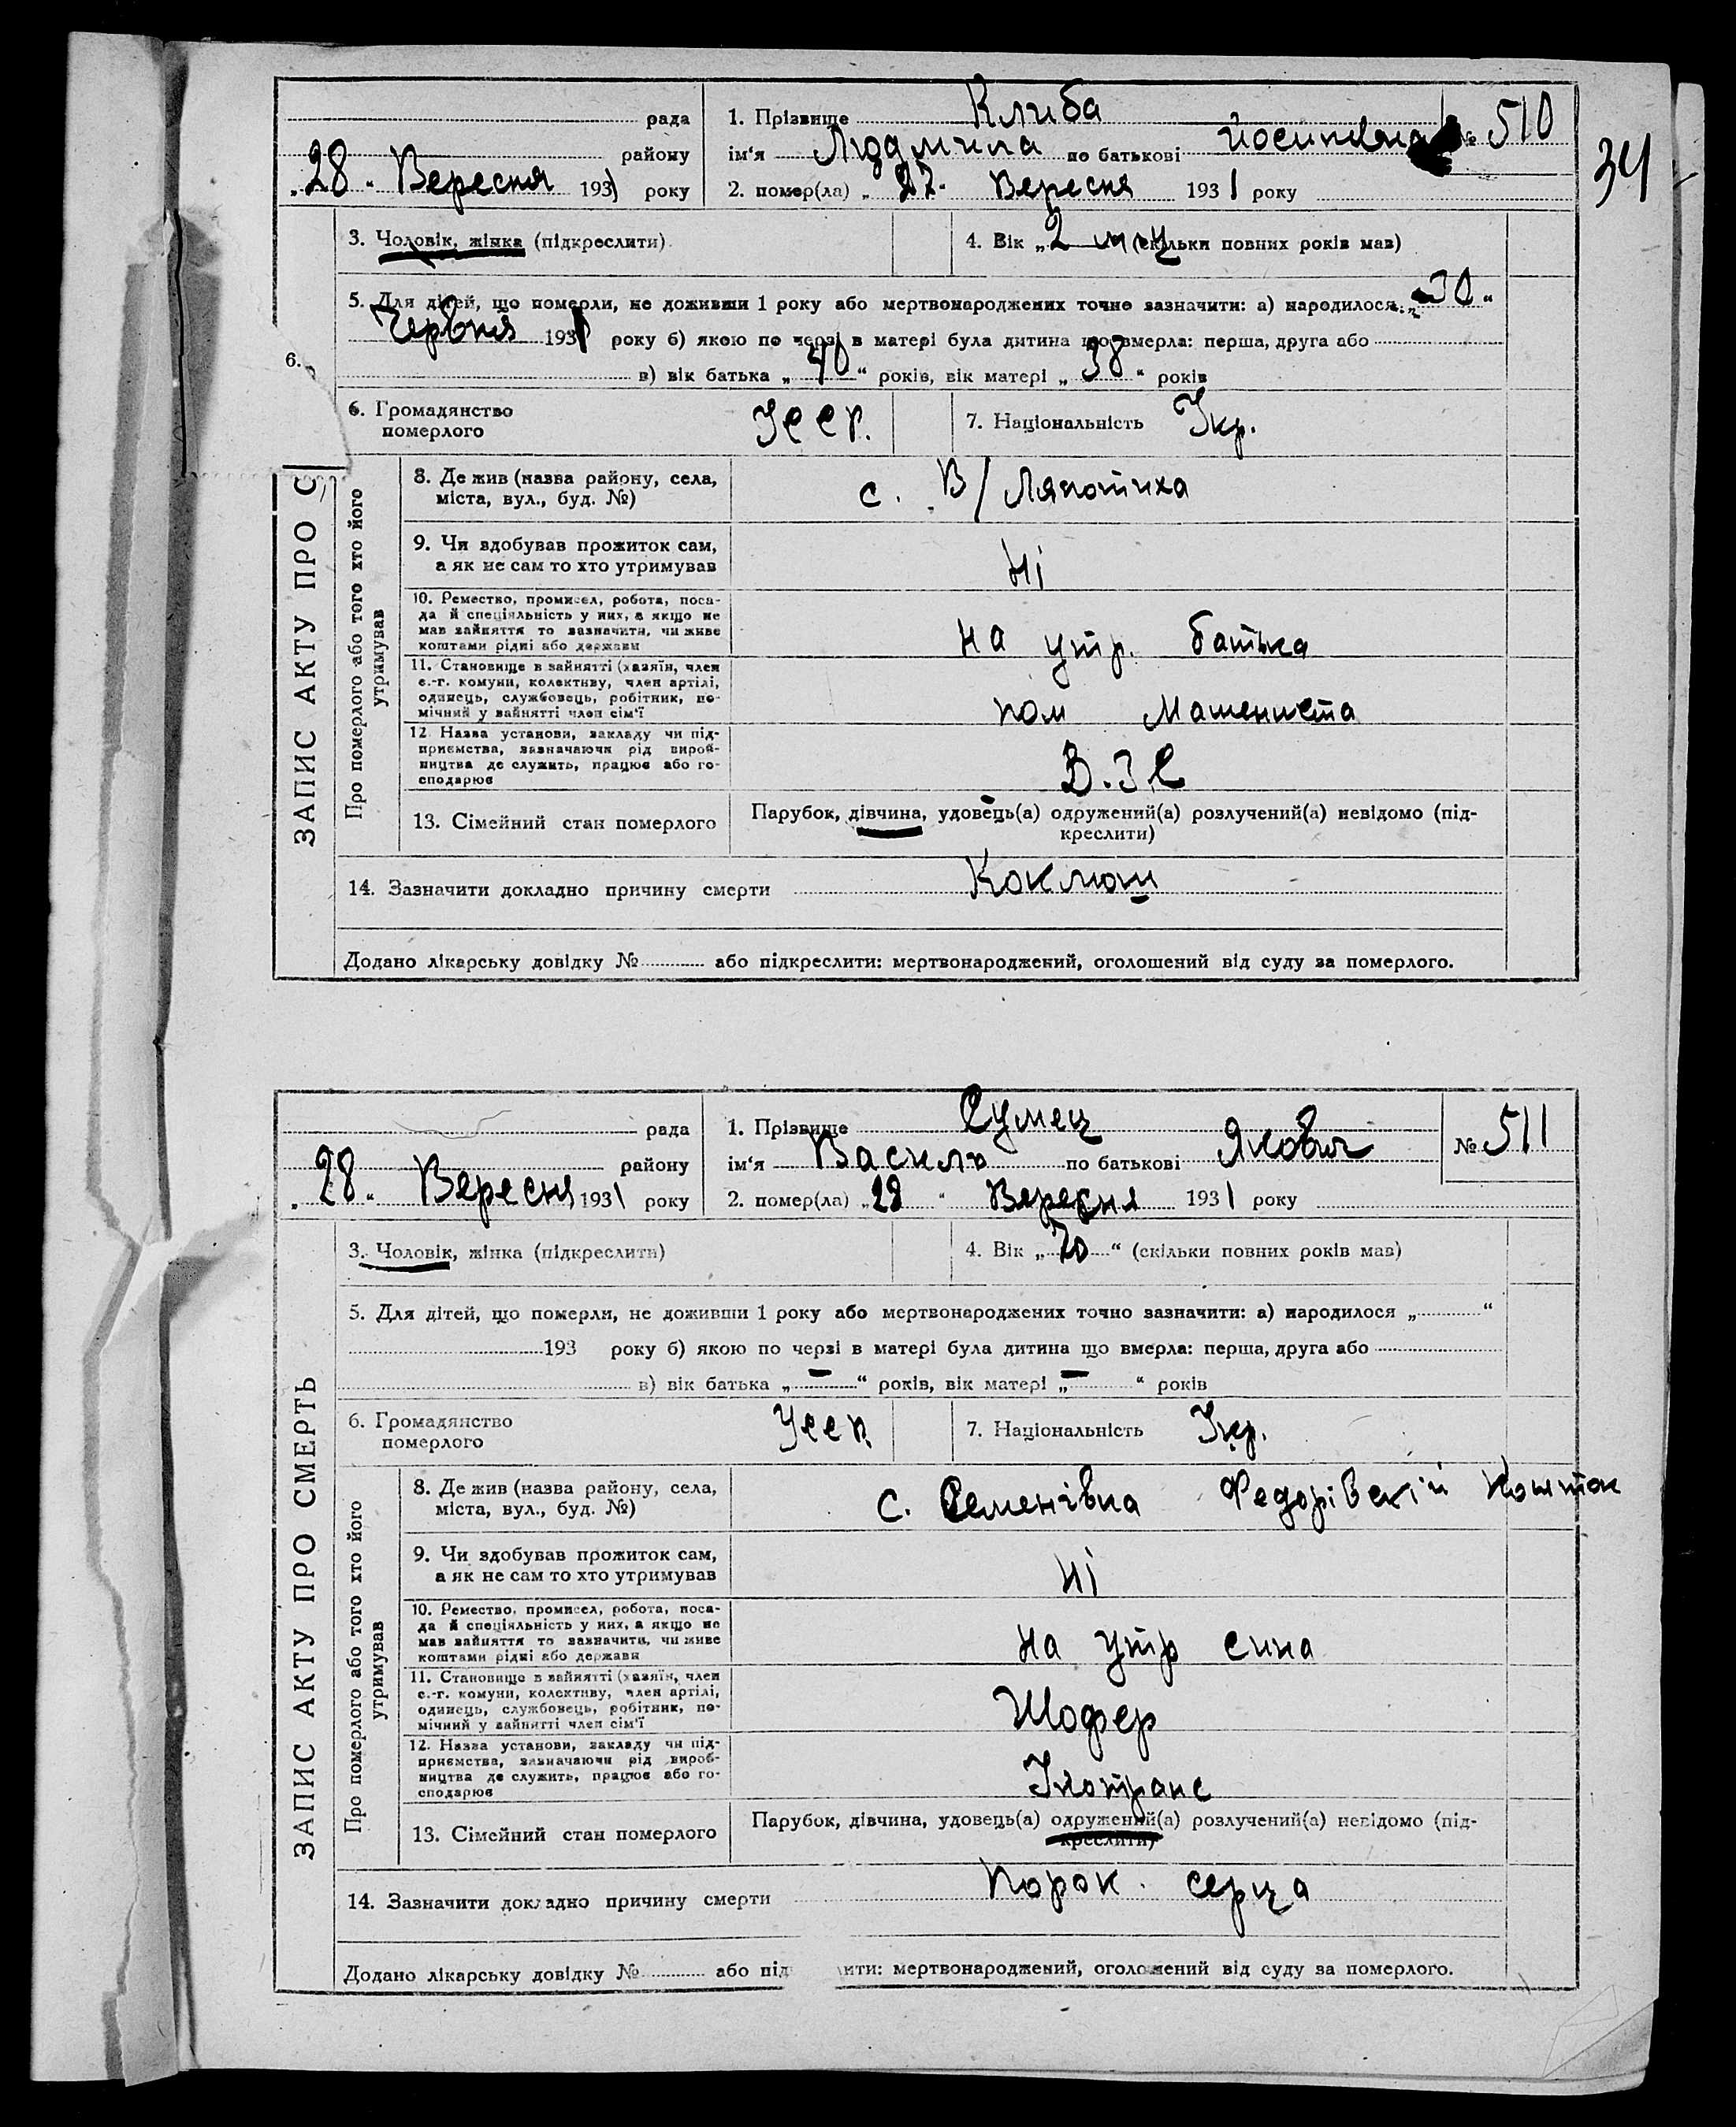 рада
1. Прізвище Клиба
№ 510
34
району
ім'я Людмила по батькові Йосиповна
„28“ Вересня 1931 року
2. помер(ла) „27“ Вересня 1931 року
3. Чоловік, жінка (підкреслити)
4. Вік „2 м-ц (скільки повних років мав)
5. Для дітей, що померли, не доживши 1 року або мертвонароджених точно зазначити: а) народилося „30“
Червня 1931 року б) якою по черзі в матері була дитина що вмерла: перша, друга або
6.
в) вік батька „40“ років, вік матері „38“ років
6. Громадянство
померлого
УССР.
7. Національність Укр.
ЗАПИС АКТУ ПРО С
Про померлого або того хто його
утримував
8. Де жив (назва району, села,
міста, вул., буд. №)
с. В/Ляпотиха
9. Чи здобував прожиток сам,
а як не сам то хто утримував
Ні
10. Ремество, промисел, робота, поса-
да й спеціяльність у них, а якщо не
мав зайняття то зазначити, чи живе
коштами рідні або держави
на утр. батька
11. Становище в зайнятті (хазяїн, член
с.-г. комуни, колективу, член артілі,
одинець, службовець, робітник, по-
мічний у зайнятті член сім'ї
пом Машениста
12. Назва установи, закладу чи під-
приємства, зазначаючи рід вироб-
ництва де служить, працює або го-
сподарює
В.З.С
13. Сімейний стан померлого
Парубок, дівчина, удовець(а) одружений(а) розлучений(а) невідомо (під-
креслити)
14. Зазначити докладно причину смерти Коклюш
Додано лікарську довідку № або підкреслити: мертвонароджений, оголошений від суду за померлого.
рада
1. Прізвище Сумец
№ 511
району
ім'я Василь по батькові Якович
„28“ Вересня 1931 року
2. помер(ла) „28“ Вересня 1931 року
3. Чоловік, жінка (підкреслити)
4. Вік „70“ (скільки повних років мав)
5. Для дітей, що померли, не доживши 1 року або мертвонароджених точно зазначити: а) народилося „ “
193 року б) якою по черзі в матері була дитина що вмерла: перша, друга або
в) вік батька „—“ років, вік матері „—“ років
6. Громадянство
померлого
УССР.
7. Національність Укр.
ЗАПИС АКТУ ПРО СМЕРТЬ
Про померлого або того хто його
утримував
8. Де жив (назва району, села,
міста, вул., буд. №)
с. Семенівка Федорівский
9. Чи здобував прожиток сам,
а як не сам то хто утримував
Ні
10. Ремество, промисел, робота, поса-
да й спеціяльність у них, а якщо не
мав зайняття то зазначити, чи живе
коштами рідні або держави
на утр сина
11. Становище в зайнятті (хазяїн, член
с.-г. комуни, колективу, член артілі,
одинець, службовець, робітник, по-
мічний у зайнятті член сім'ї
Шофер
12. Назва установи, закладу чи під-
приємства, зазначаючи рід вироб-
ництва де служить, працює або го-
сподарює
13. Сімейний стан померлого
Парубок, дівчина, удовець(а) одружений(а) розлучений(а) невідомо (під-
креслити)
14. Зазначити докладно причину смерти Порок серца
Додано лікарську довідку № або під ити: мертвонароджений, оголошений від суду за померлого.